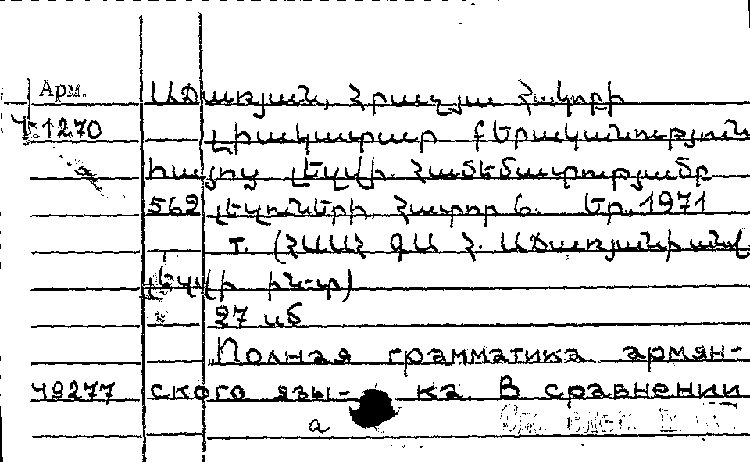 Арм. Աճառյան, Հրաչյա Հակոբի
Ч-1270 Լիակատար քերականություն
հայոց լեզվի. Համեմատությամբ
562 լեզուների, հատոր 6. Եր., 1971
т. (ՀՍՍՀ ԳԱ Հ. Աճառյանի անվ.
լեզվի ին-տ)
27 սմ
Полная грамматика армян-
49277 ского язы- ка. В сравнении
а